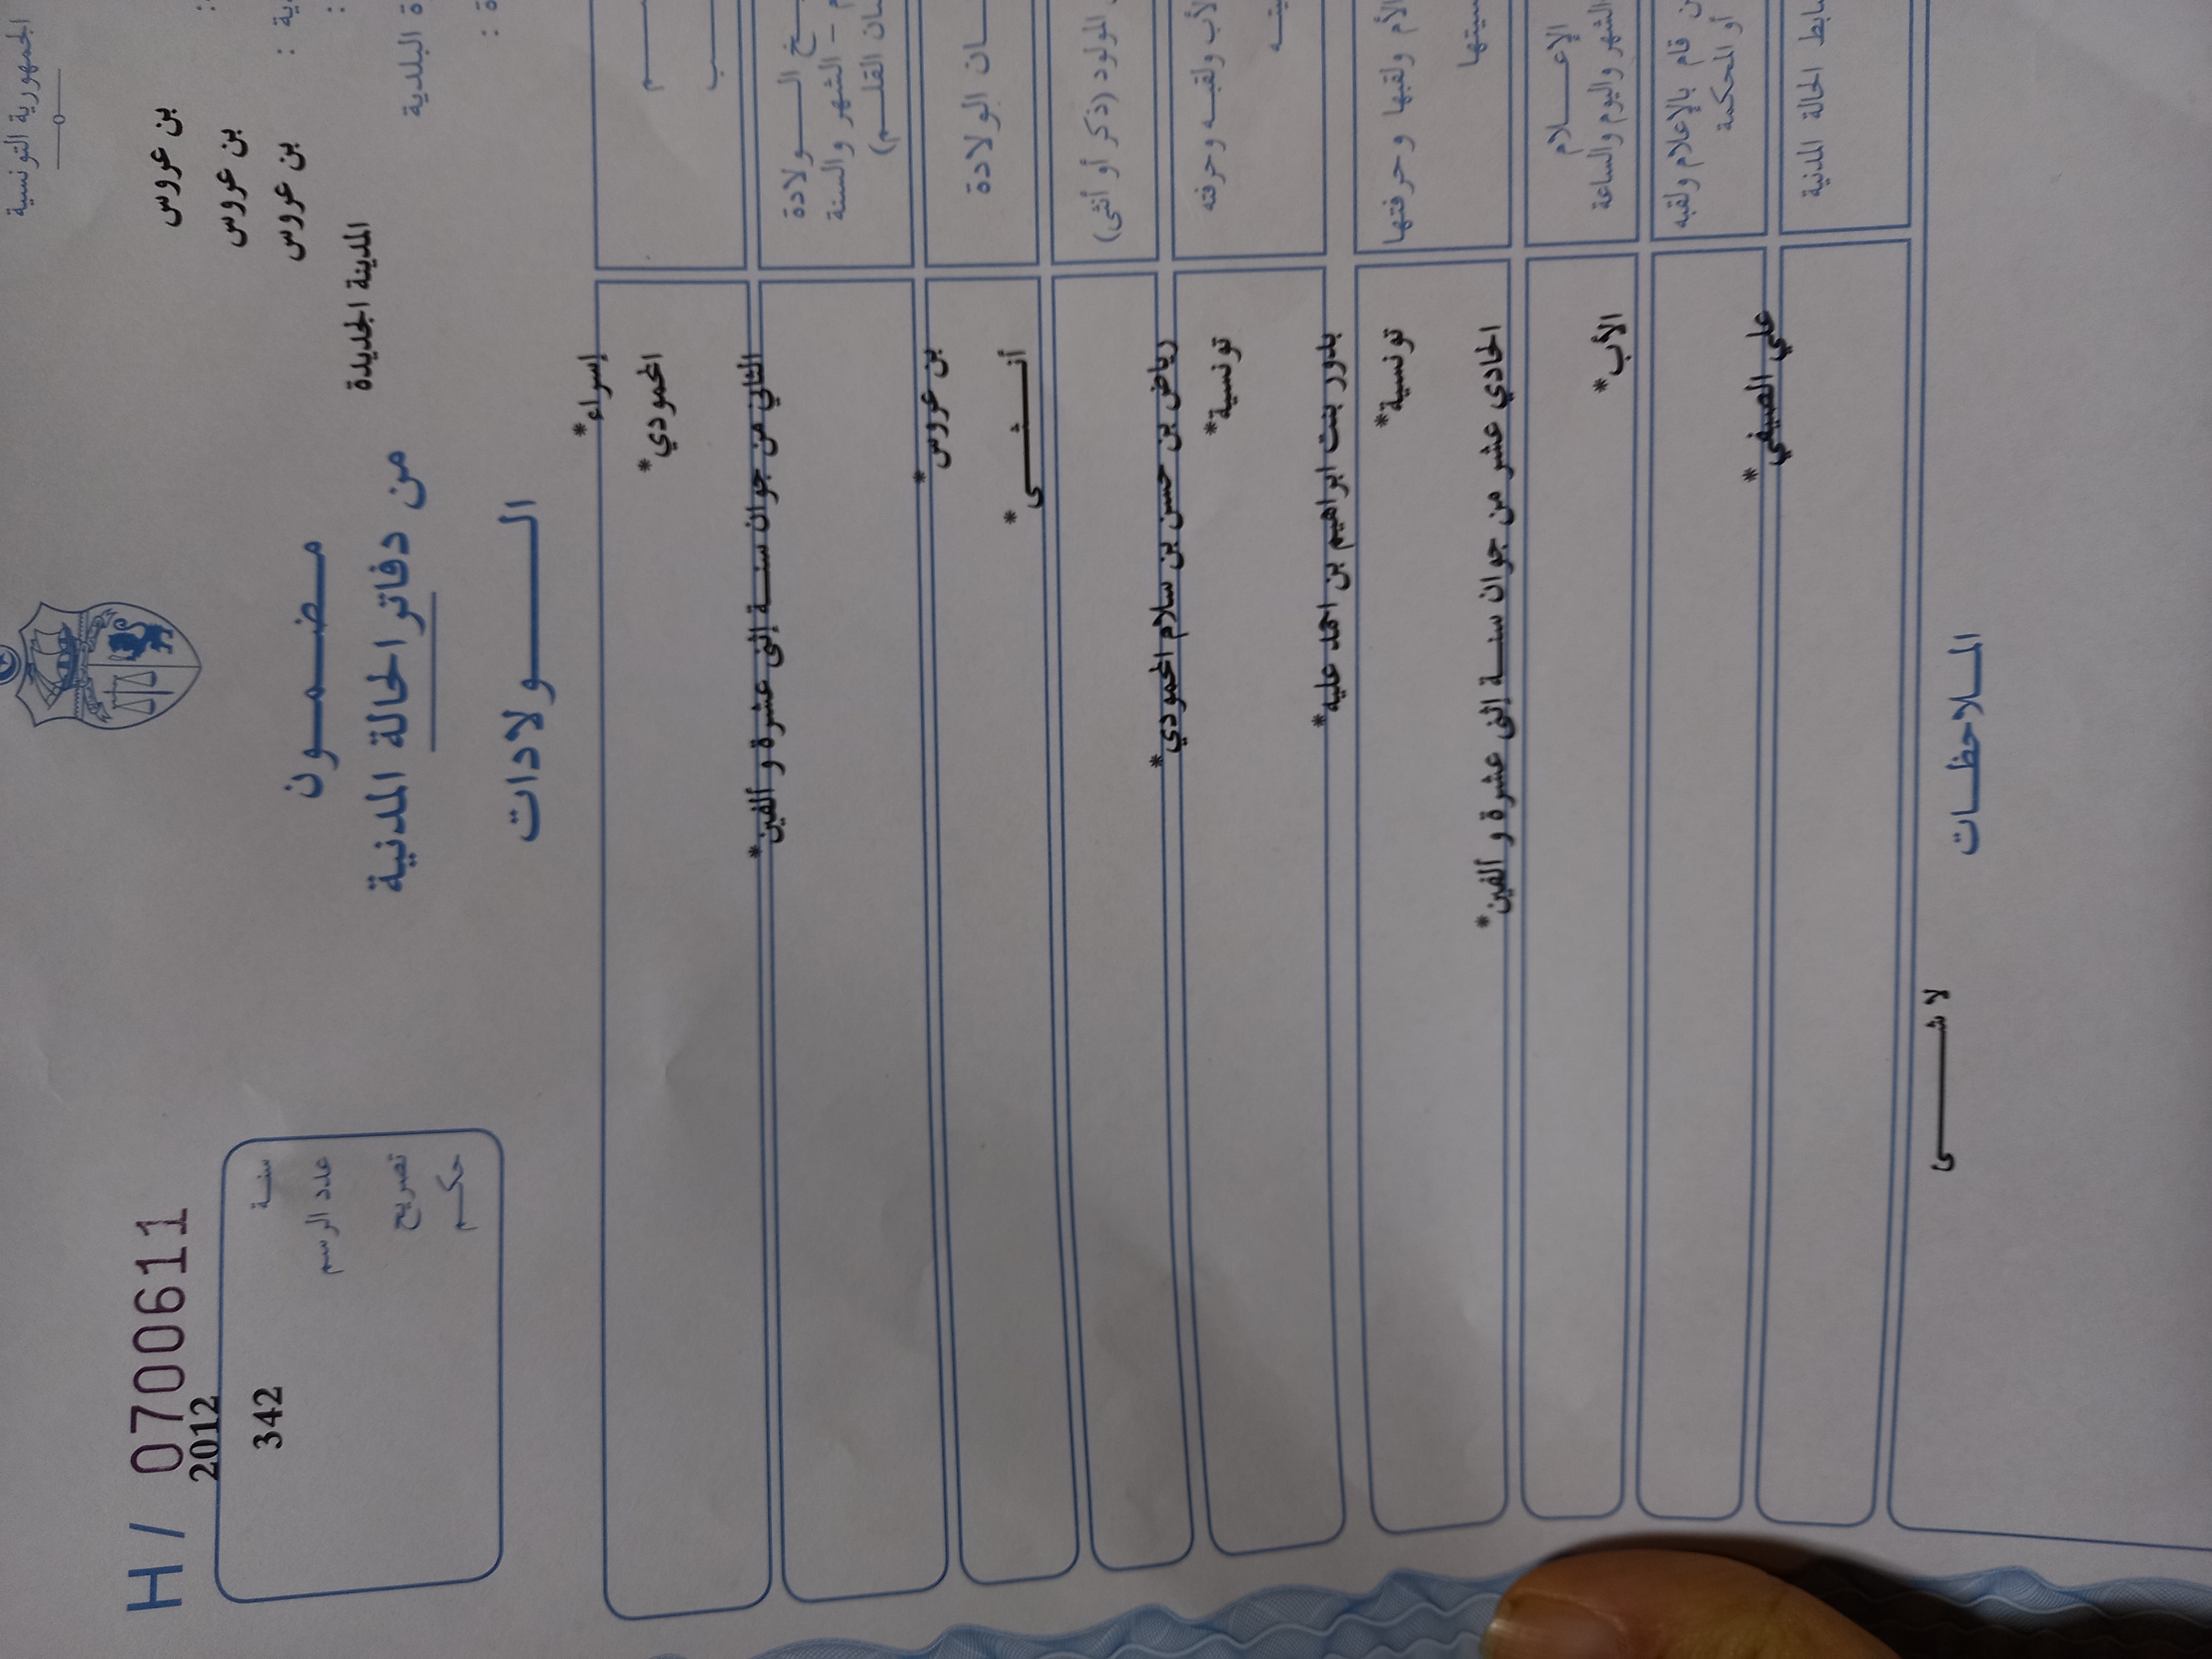 الجمهورية التونسية
H / 0700611
2012
342
سنة
عدد الرسم
تصريح
حكم
بن عروس
بن عروس
بن عروس
المدينة الجديدة
البلدية
مضمون
من دفاتر الحالة المدنية
الولادات
إسراء*
الحمودي*
الولادة
الشهر والسنة
القلم)
الثاني من جوان سنة إثنى عشرة و ألفين*
الولادة
بن عروس*
المولود (ذكر أو أنثى)
أنثى*
الأب ولقبه وحرفته
رياض بن حسن بن سلام الحمودي*
تونسية*
الأم ولقبها وحرفتها
بدور بنت ابراهيم بن احمد عليه*
تونسية*
الإعلام
الشهر واليوم والساعة
الحادي عشر من جوان سنة إثنى عشرة و ألفين*
قام بالإعلام ولقبه
أو المحكمة
الأب*
الحالة المدنية
علي الصيفي*
الملاحظات
لا شى